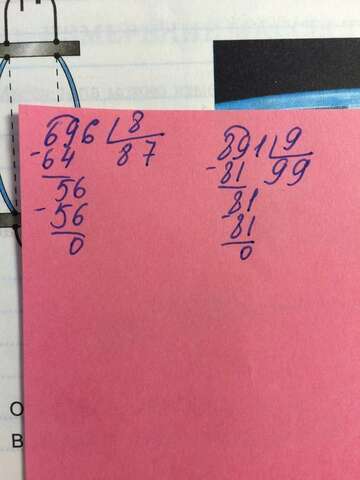 696 8
-64 87
56
-56
0
891 9
-81 99
81
81
0
О
В